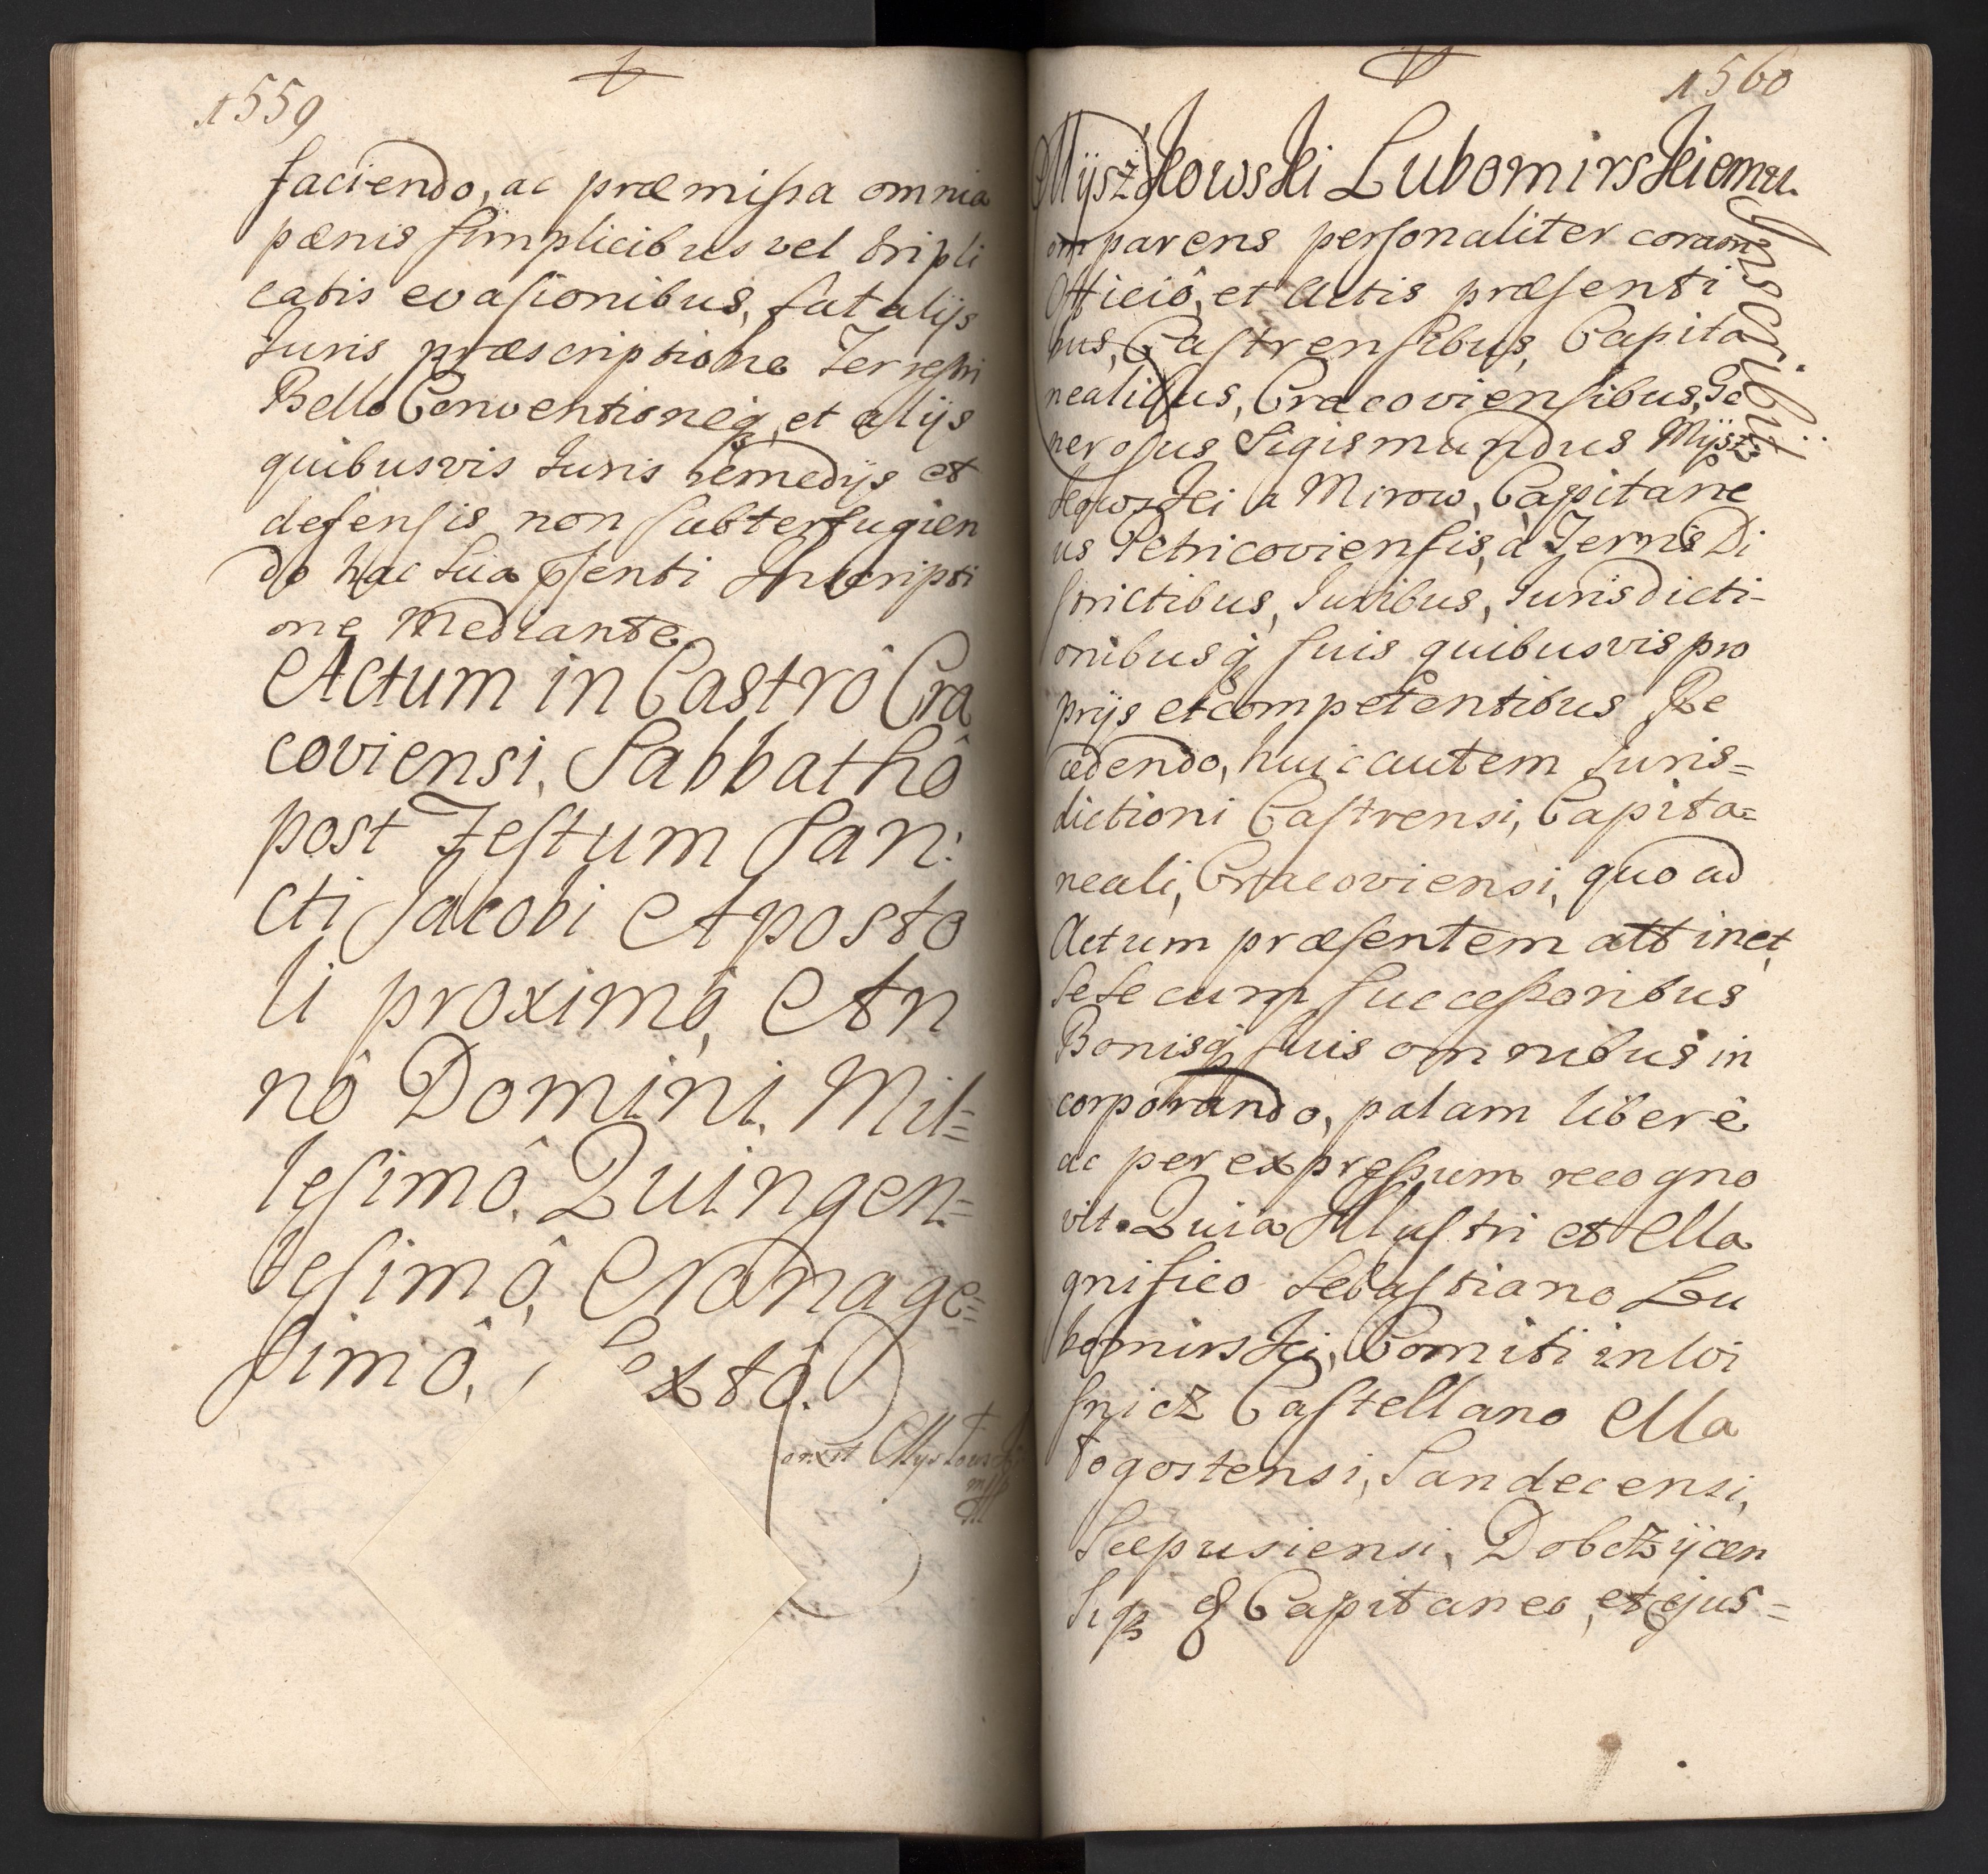 1559
faciendo, ac præmissa omnia
pænis simplicibus vel tripli
catis evasionibus, fatalijs
Juris præscriptione Terrestri
Bello Conventioneq, et alijs
quibusvis Juris remedijs et
defensis non subterfugien
do hac sua psenti Inscripti
one Mediante.
Actum in Castrô Cra
coviensi, Sabbathô
post Festum San:
cti Jacobi Aposto
li proximô, An
nô Domini Mil=
lesimô, Quingen=
tesimô, Nonage=
simô, Sextô.
1560
Myszkowski Lubomirskiemu
Inscribit
omparens personaliter coram
Officiô, et Actis præsenti
bus, Castrensibus, Capita
nealibus, Cracoviensibus, Ge
nerosus Sigismundus Mysz
kowski a Mirow, Capitane
us Petricoviensis, à Terris Di
strictibus, Juribus, Jurisdicti-
onibusq suis quibusvis pro
prijs et competentibus Re
cedendo, huic autem Juris=
dictioni Castrensi, Capita=
neali, Cracoviensi, quo ad
Actum præsentem attinet,
Sese cum successoribus
Bonisq suis omnibus in
corporando, palam liberè
ac per expressum recogno
vit. Quia Illustri et Ma
gnifico Sebastiano Lu
bomirski, Comiti in Wi
snicz Castellano Ma
togostensi, Sandecensi,
Scepusiensi, Dobczÿcen
siq & Capitaneo, et ejus=